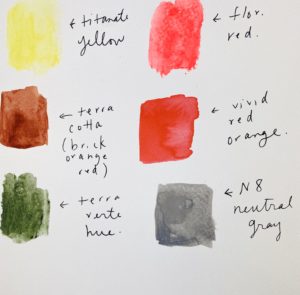 ← titanate
yellow
← flor.
red.
← terra
cotta
(brick
orange
red)
← vivid
red
orange.
← terra
verte
hue.
← N8
neutral
gray